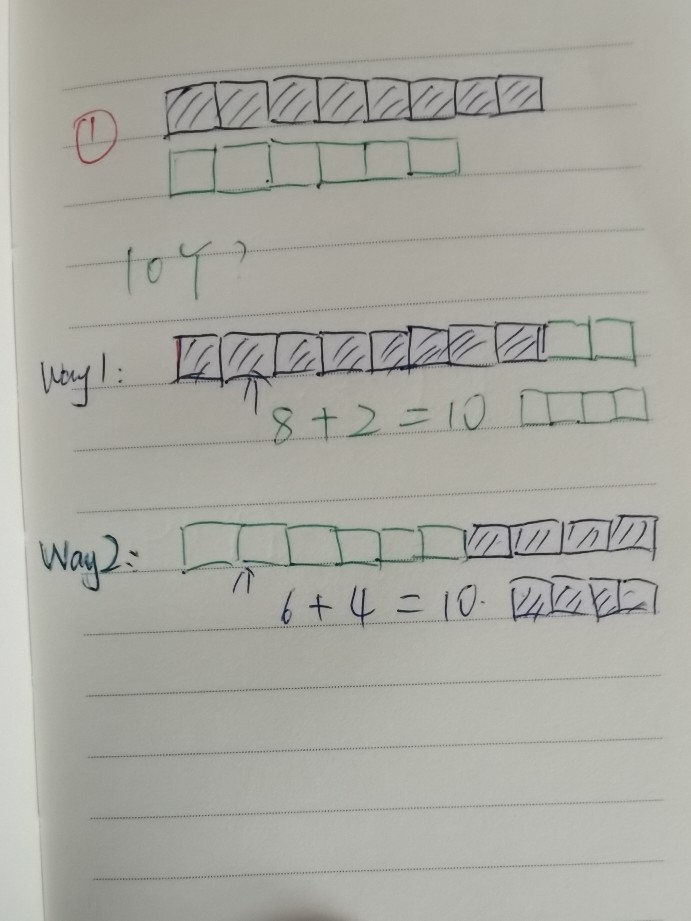 ①
10个?
Way1:
8+2=10
Way2:
6+4=10.